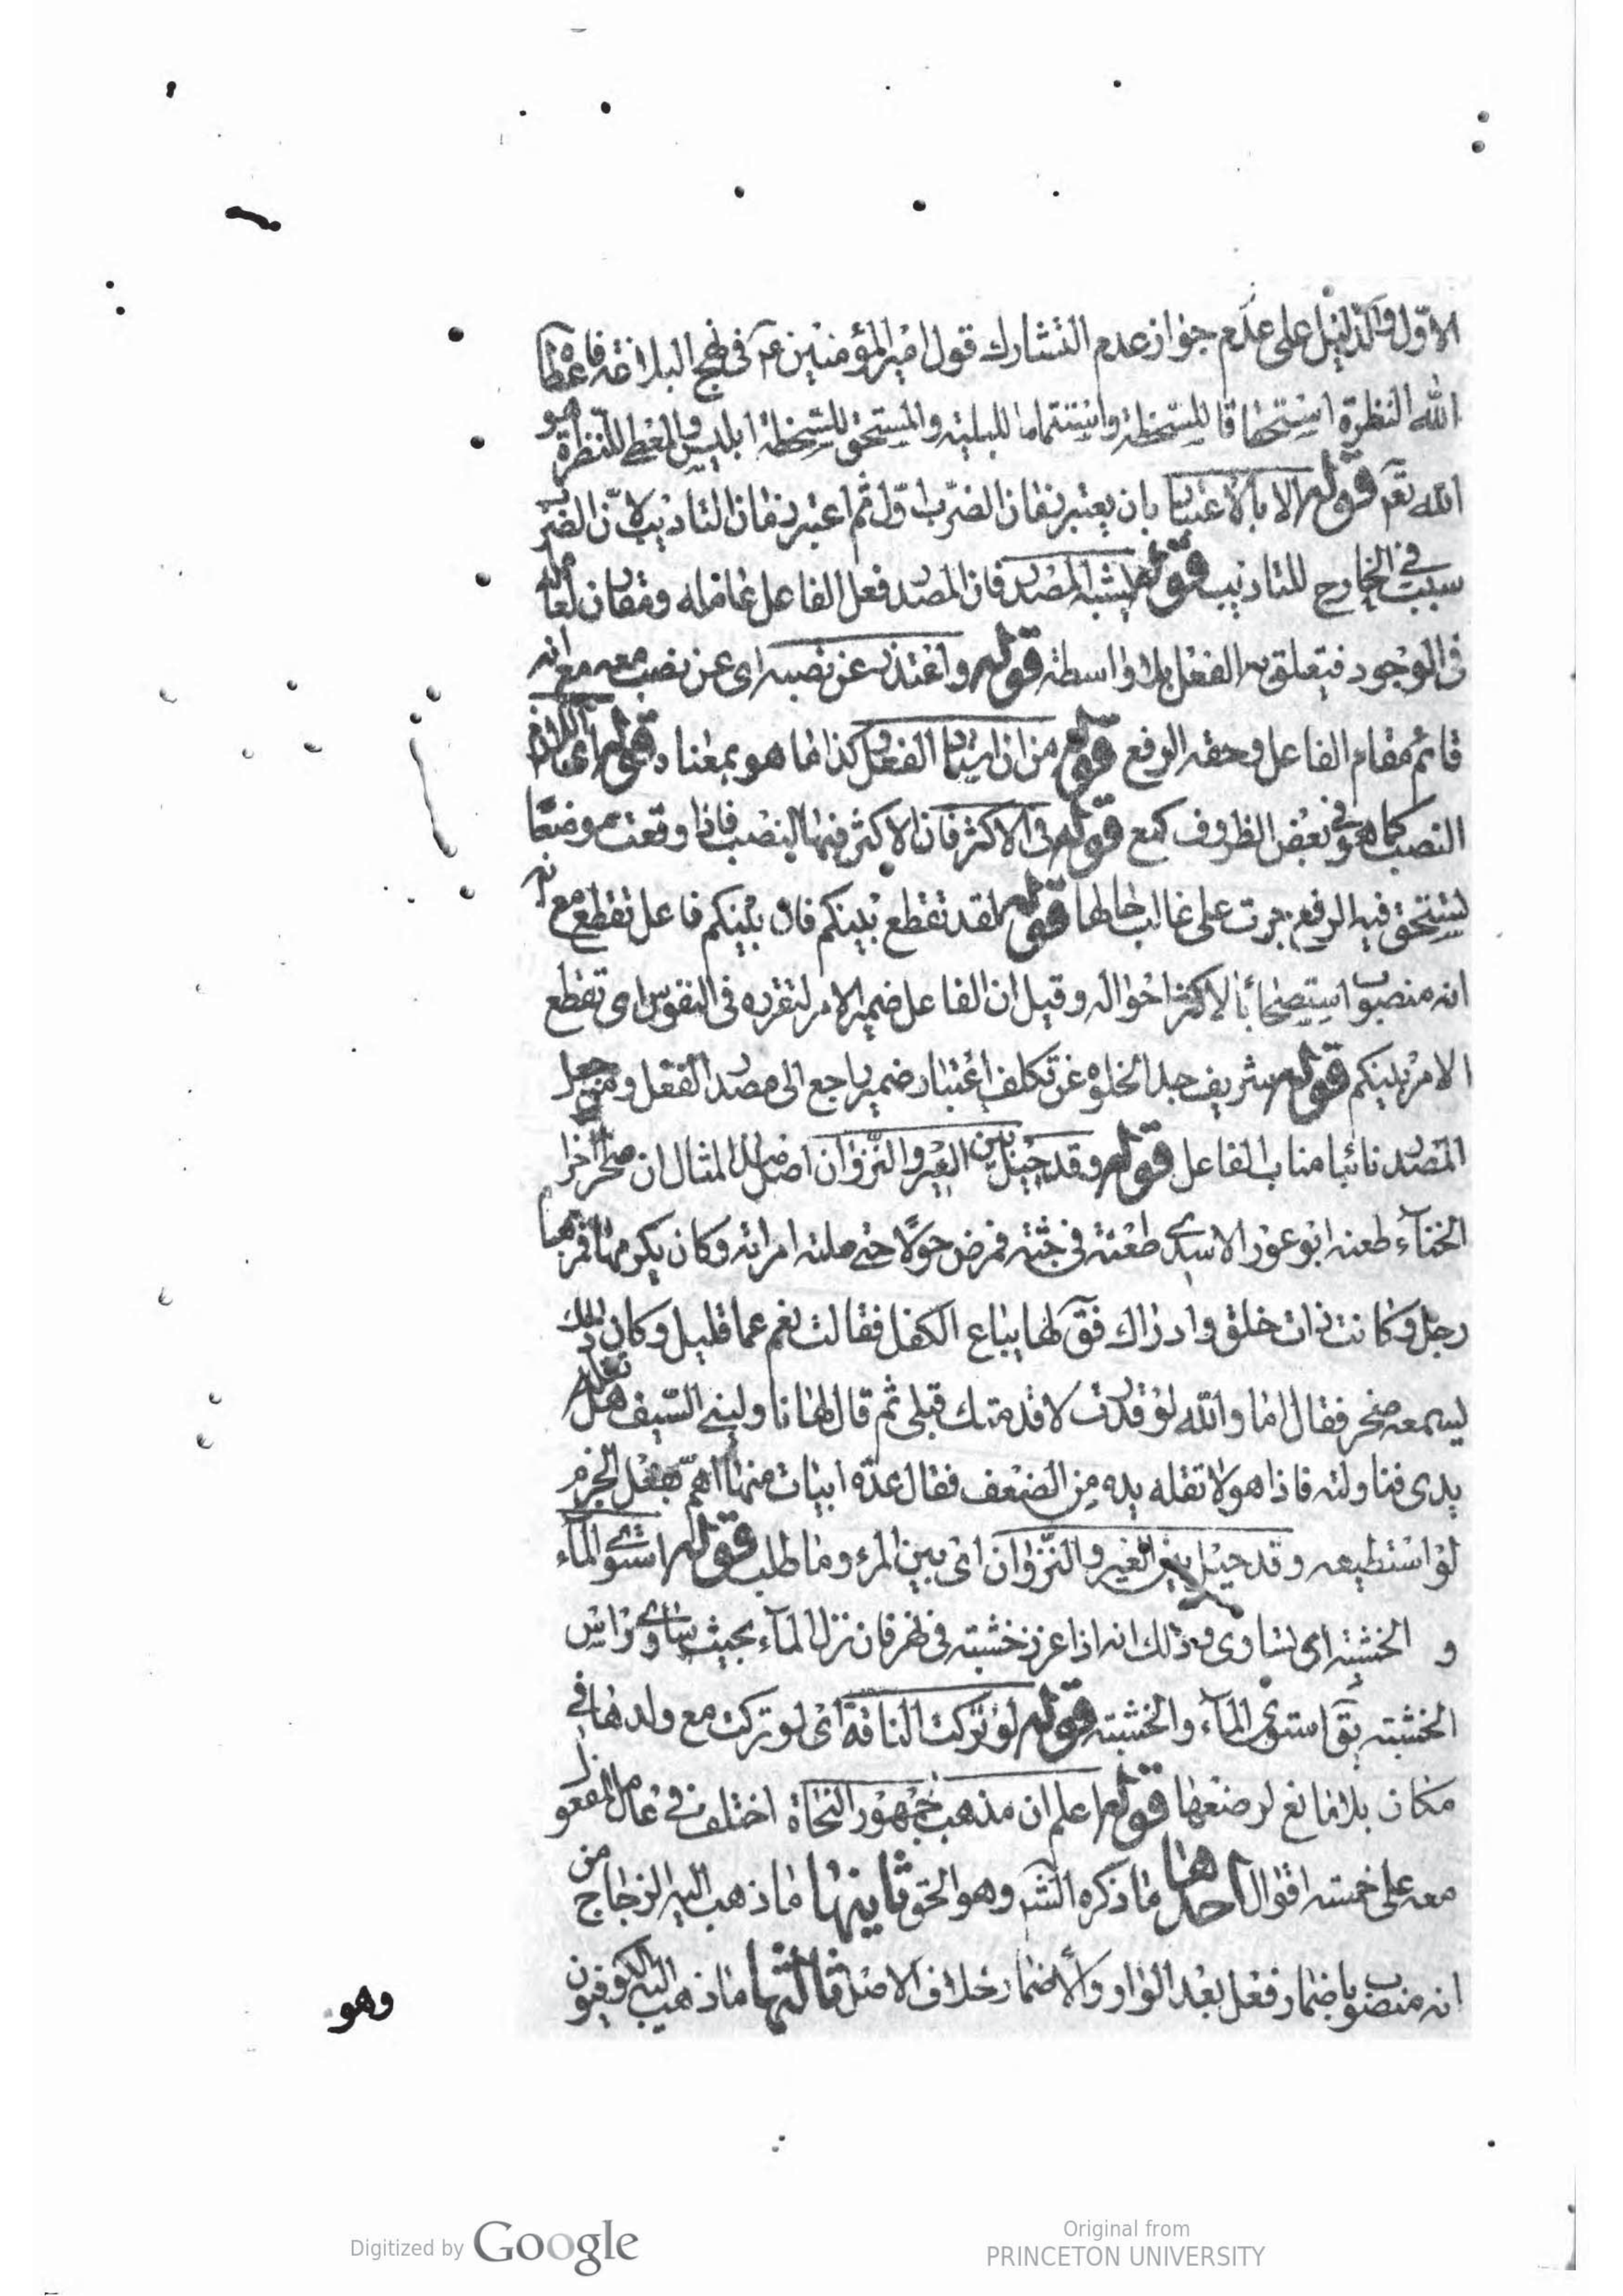 الاوّل والدّليل على عدم جواز عدم التشارك قول امير المؤمنين عم في نهج البلاغة فاعطاه
الله النظرة استحقاقا للسّخطة واستتماما للبلية والمستحق للسّخطة ابليس والمعطى للنّظرة هو
الله تعم قوله الا بالاعتبار بان يعتبر زمان الضّرب اوّل ثم اعتبر زمان التاديب لانّ الضّرب
سبب في الخارج للتاديب قوله لشبه المصدر فان المصدر فعل الفاعل عامله ومقارن له
في الوجود فيتعلق به الفعل بلا واسطة قوله واعتذر عن نصبه اى عن نصب معه مع انه
قائم مقام الفاعل وحقه الرفع قوله من ان اثبات الفعل وكذا ما هو بمعناه قوله اى
النصب كما هو في بعض الظروف كمع قوله في الاكثر فان الاكثر فيها النصب فاذا وقعت موضعا
تستحق فيه الرفع جرت على غالب حالها قوله لقد تقطع بينكم فان بينكم فاعل تقطع مع
انه منصوب استصحابا لاكثر احواله وقيل ان الفاعل ضمير الامر لتقرره في النفوس اى تقطع
الامر بينكم قوله شريف جدا لخلوه عن تكلف اعتبار ضمير راجع الى مصدر الفعل ومن جعل
المصدر نائبا مناب الفاعل قوله وقد حيل بين العير والنّزوان اصل المثال ان صخر اخا
الخنساء طعنه ابو ثور الاسدي طعنة في جنبه فمرض حولا حتى ملته امراته وكان يكرمها فمر بها
رجل وكانت ذات خلق وادراك فقٓ لها يباع الكفل فقالت نعم عما قليل وكان ذلك
يسمعه صخر فقال اما والله لو قدرت لاقدمنك قبلى ثم قال لها ناولينى السّيف هل تقله
يدى فناولته فاذا هو لا تقله يده من الضعف فقال عدّة ابيات منها اهمّ بفعل الحزم
لو استطيعه وقد حيل بين العير والنّزوان اى بين المرء وما طلب قوله استوى المآء
و الخشبة اى تساوى وذلك انه اذا غرز خشبة في نهر فان نزل المآء بحيث يساوى راس
الخشبة يقٓ استوى المآء والخشبة قوله لو تركت الناقة اى لو تركت مع ولدها في
مكان بلا مانع لرضعها قوله اعلم ان مذهب جمهور النحاة اختلف في عامل المفعول
معه على خمسة اقوال احدها ما ذكره الشّر وهو الحق ثانيها ما ذهب اليه الزجاج من
انه منصوب باضمار فعل بعد الواو والاضمار خلاف الاصل ثالثها ما ذهب اليه الكوفيون
وهو
Digitized by Google
Original from
PRINCETON UNIVERSITY